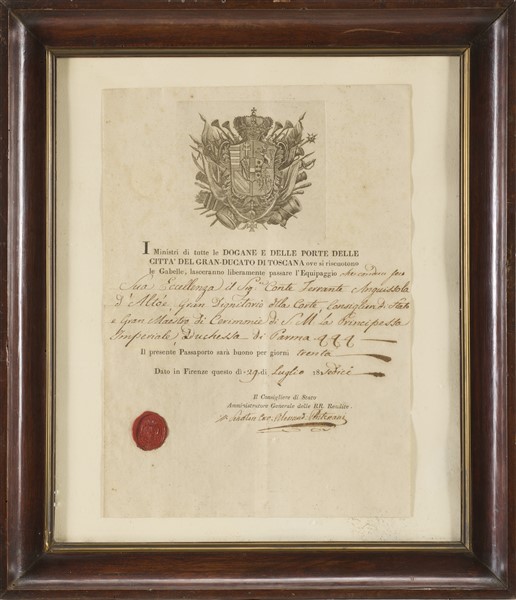 I Ministri di tutte le DOGANE E DELLE PORTE DELLE
CITTA' DEL GRAN-DUCATO DI TOSCANA ove si riscuotono
le Gabelle, lasceranno liberamente passare l'Equipaggio
Sua Eccellenza il Sig.r Conte Ferrante Anguissola
d'Altoè Gran Dignitario della Corte, Consiglier di Stato
e Gran Maestro di Cerimonie di S. M. la Principessa
Imperiale Duchessa di Parma
Il presente Passaporto sarà buono per giorni trenta
Dato in Firenze questo dì 29 di Luglio 18 Sedici
Il Consigliere di Stato
Amministratore Generale delle RR. Rendite.